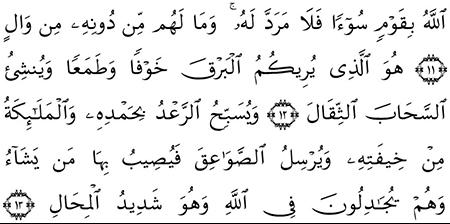 اللَّهُ بِقَوْمٍ سُوٓءًا فَلَا مَرَدَّ لَهُۥ ۚ وَمَا لَهُم مِّن دُونِهِۦ مِن وَالٍ
﴿١١﴾ هُوَ الَّذِى يُرِيكُمُ الْبَرْقَ خَوْفًا وَطَمَعًا وَيُنشِئُ
السَّحَابَ الثِّقَالَ ﴿١٢﴾ وَيُسَبِّحُ الرَّعْدُ بِحَمْدِهِۦ وَالْمَلَـٰٓئِكَةُ
مِنْ خِيفَتِهِۦ وَيُرْسِلُ الصَّوَٰعِقَ فَيُصِيبُ بِهَا مَن يَشَآءُ
وَهُمْ يُجَـٰدِلُونَ فِى اللَّهِ وَهُوَ شَدِيدُ الْمِحَالِ ﴿١٣﴾